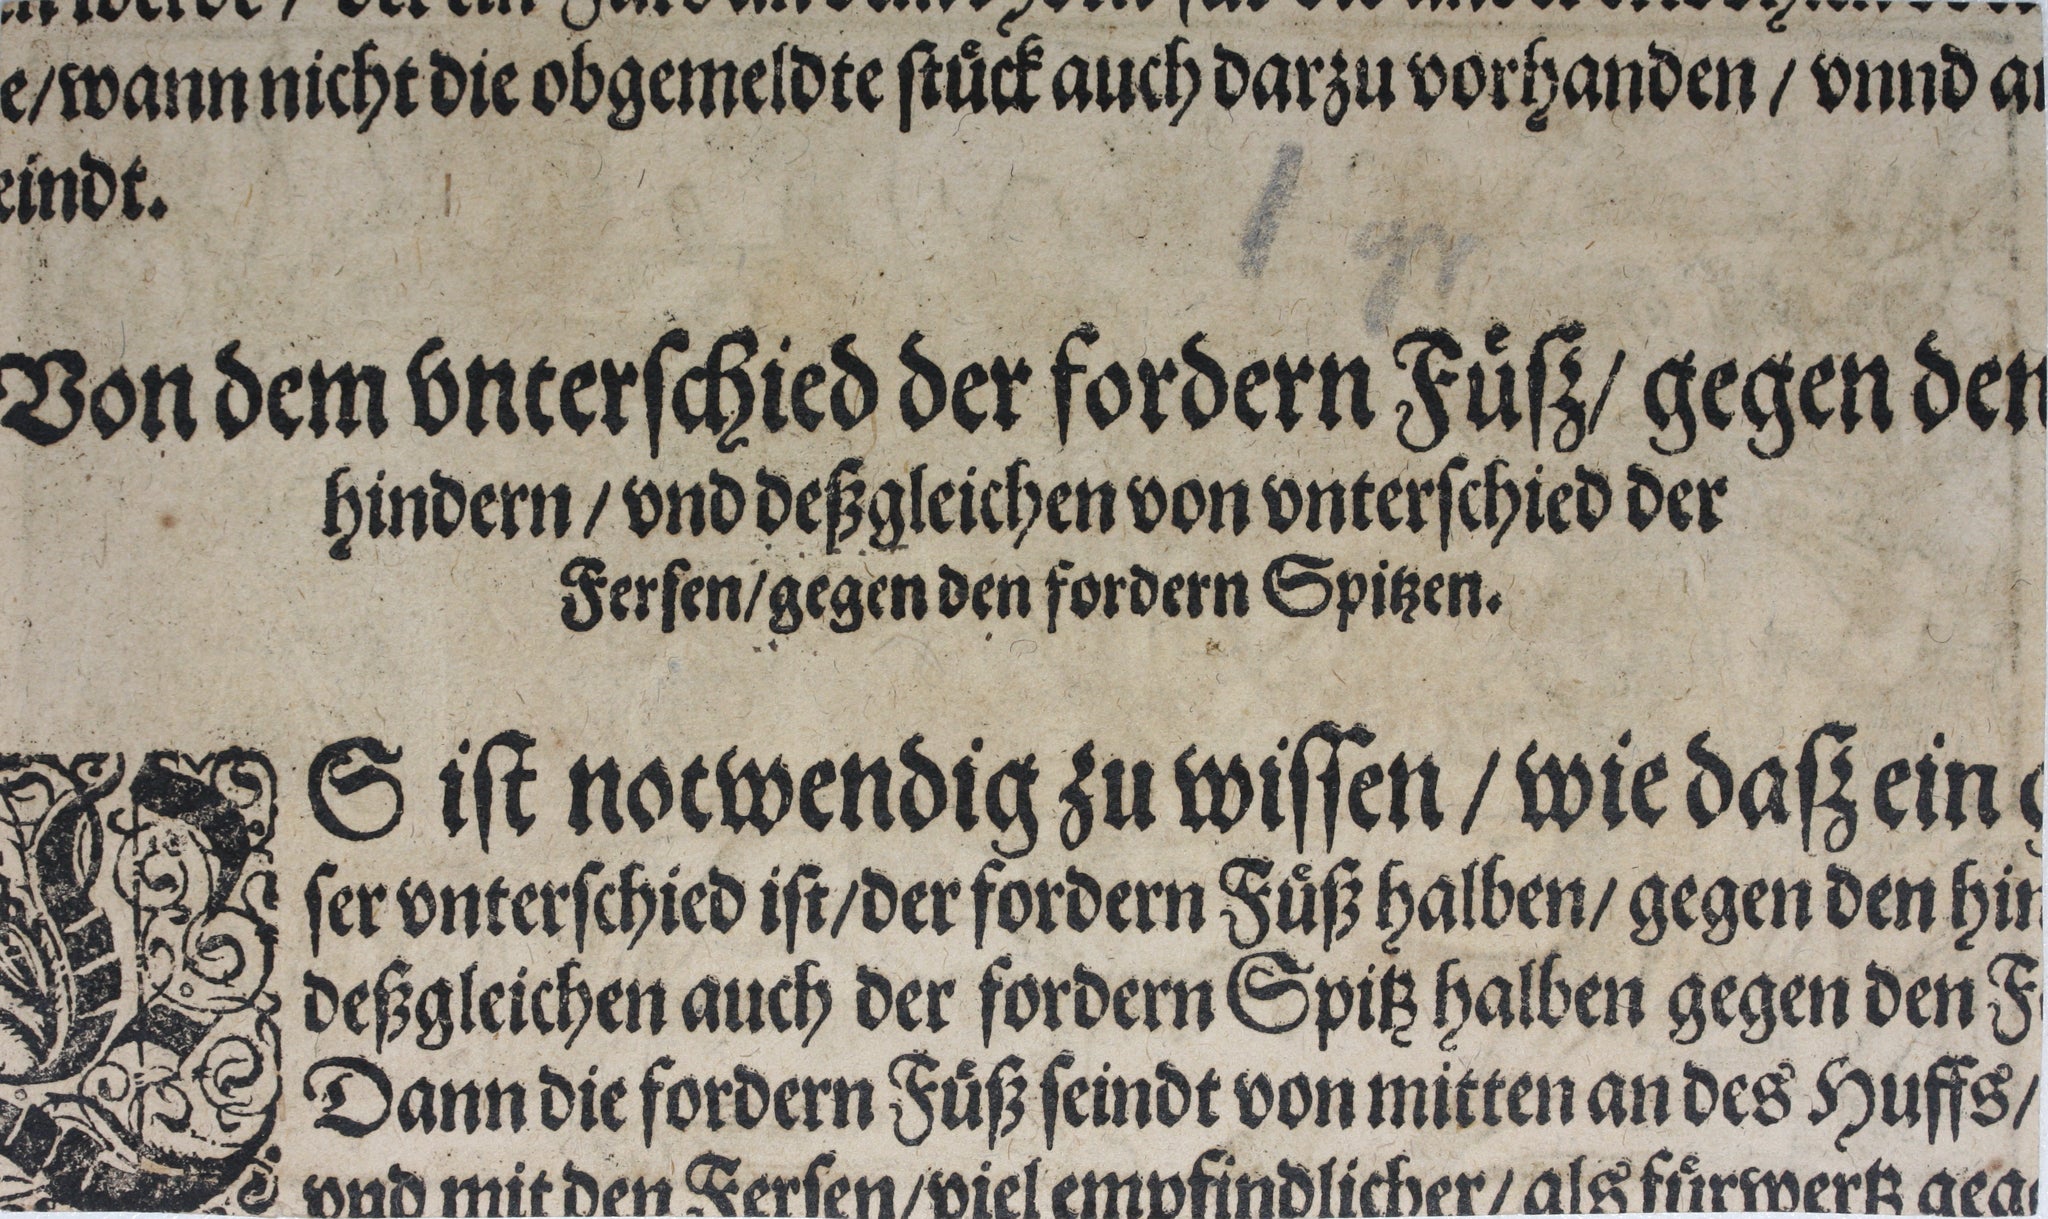 e/wann nicht die obgemeldte stuͤck auch darzu vorhanden / vnnd
eindt.
1 gr
Von dem vnterschied der fordern Fuͤß/ gegen den
hindern / vnd deßgleichen von vnterschied der
Fersen/gegen den fordern Spitzen.
ES ist notwendig zu wissen / wie daß ein g
ser vnterschied ist/der fordern Fuͤß halben/ gegen den hin
deßgleichen auch der fordern Spitz halben gegen den F
Dann die fordern Fuͤß seindt von mitten an des Huffs/
vnd mit den Fersen/viel empfindlicher/ als fuͤrwertz geg